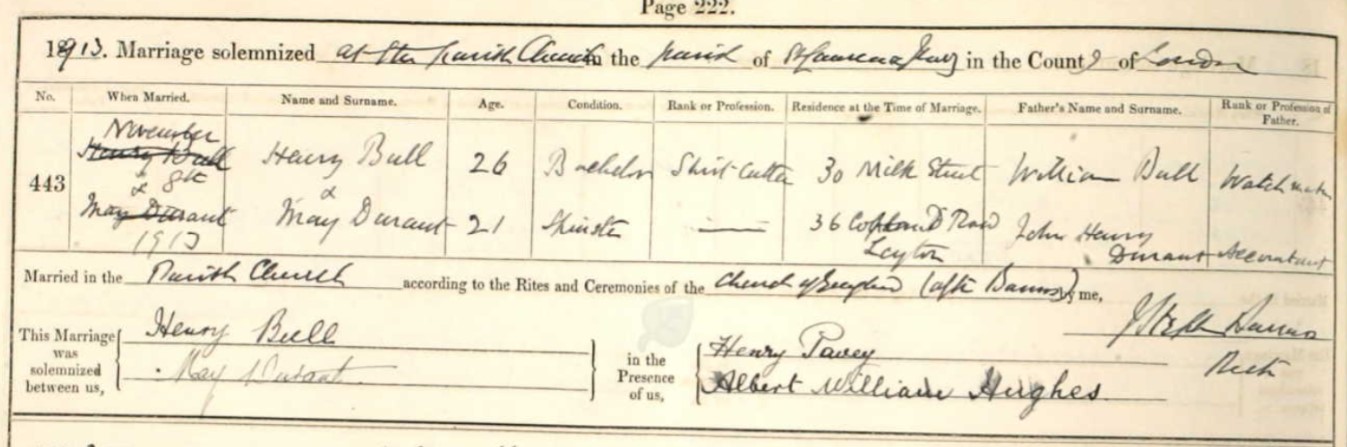 Page 222.
1913. Marriage solemnized at the parish Church in the parish of St Lawrence Jewry in the County of London
No. When Married. Name and Surname. Age. Condition. Rank or Profession. Residence at the Time of Marriage. Father's Name and Surname. Rank or Profession of Father.
443 November Henry Bull & 8th May Durant 1913
Henry Bull 26 Bachelor Shirt Cutter 30 Milk Street William Bull Watch maker
& May Durant 21 Spinster — 36 Road Leyton John Henry Durant Accountant
Married in the Parish Church according to the Rites and Ceremonies of the Church of England (after Banns) by me,
J Stephen Barrass
Rector
This Marriage was solemnized between us, Henry Bull
May Durant
in the Presence of us, Henry Pavey
Albert William Hughes